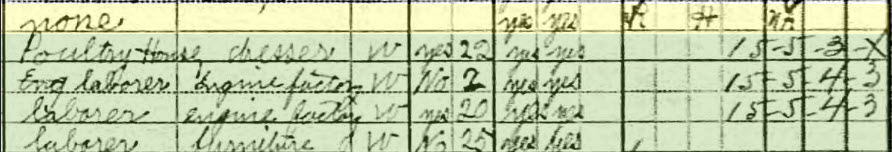 none yes yes R H
Poultry House dresser W yes 22 yes yes 15-5-3-X
Eng laborer Engine factory W No 2 yes yes 15-5-4-3
laborer engine factory W yes 20 yes yes 15-5-4-3
laborer furniture W No 25 yes yes